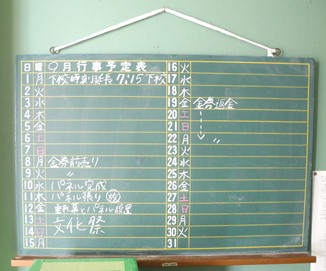 日 曜 9月行事予定表
1 月 下校時刻延長 7:15下校
2 火
3 水
4 木
5 金
6 土
7 日
8 月 金券前売り
9 火 〃
10 水 パネル完成
11 木 パネル張り(教)
12 金 垂れ幕とパネル設置
13 土 文化祭
14 日
15 月
16 火
17 水
18 木
19 金 金券返金
20 土
21 日
22 月 〃
23 火
24 水
25 木
26 金
27 土
28 日
29 月
30 火
31